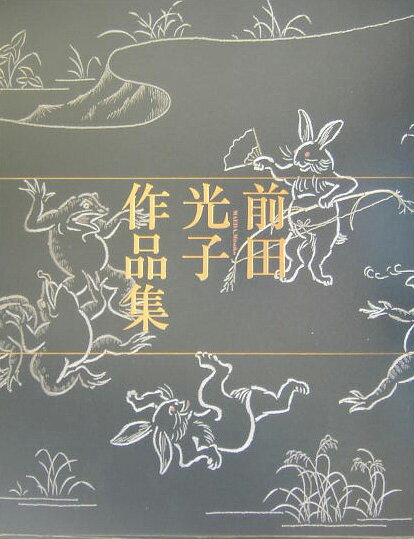 前田
光子
作品集
MAEDA Mitsuko